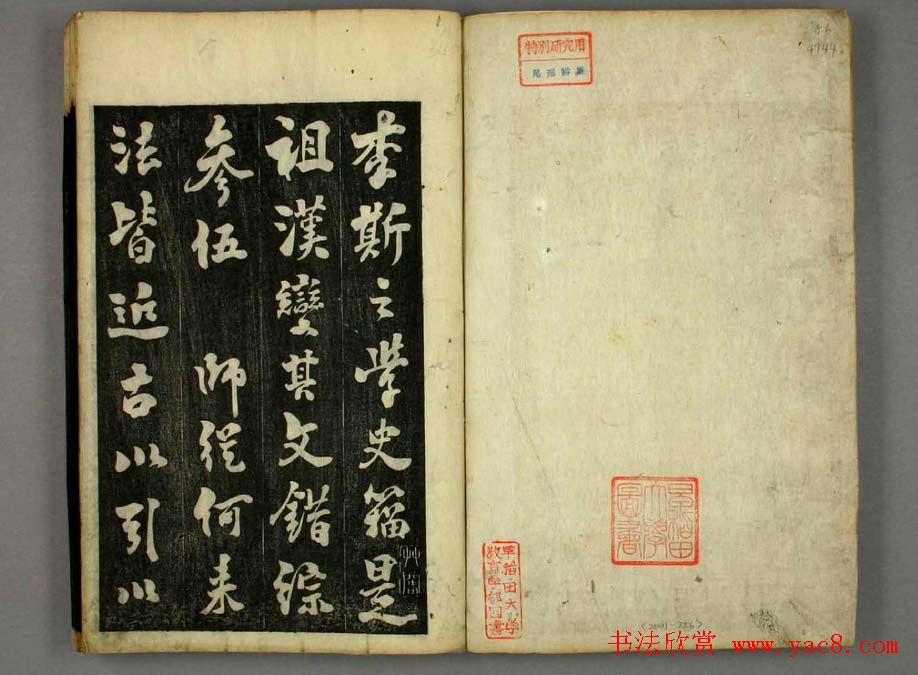 特別研究用
尾形裕康
4744
李斯之學史籀是
祖漢變其文錯綜
參伍 師從何来
法皆近古以引以
早稲田
大學
圖書
早稲田大學
教育學部図書
书法欣赏 www.yac8.com